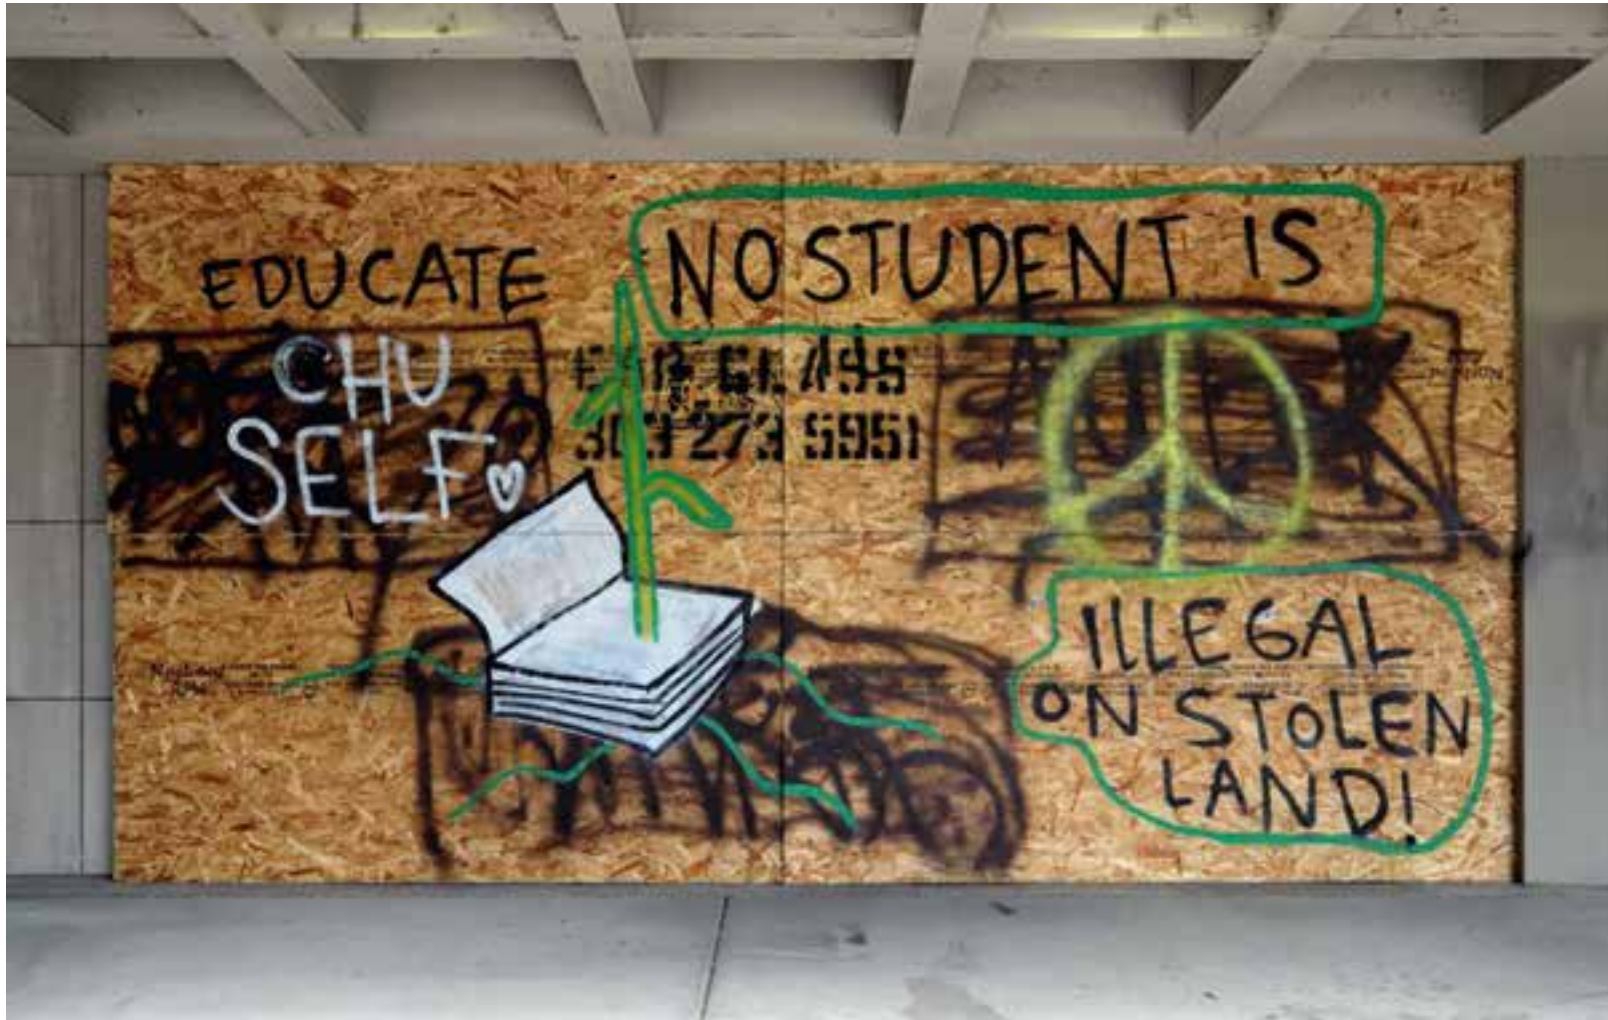 EDUCATE
CHU
SELF
NO STUDENT IS
GLASS
303 273 5951
ILLEGAL
ON STOLEN
LAND!